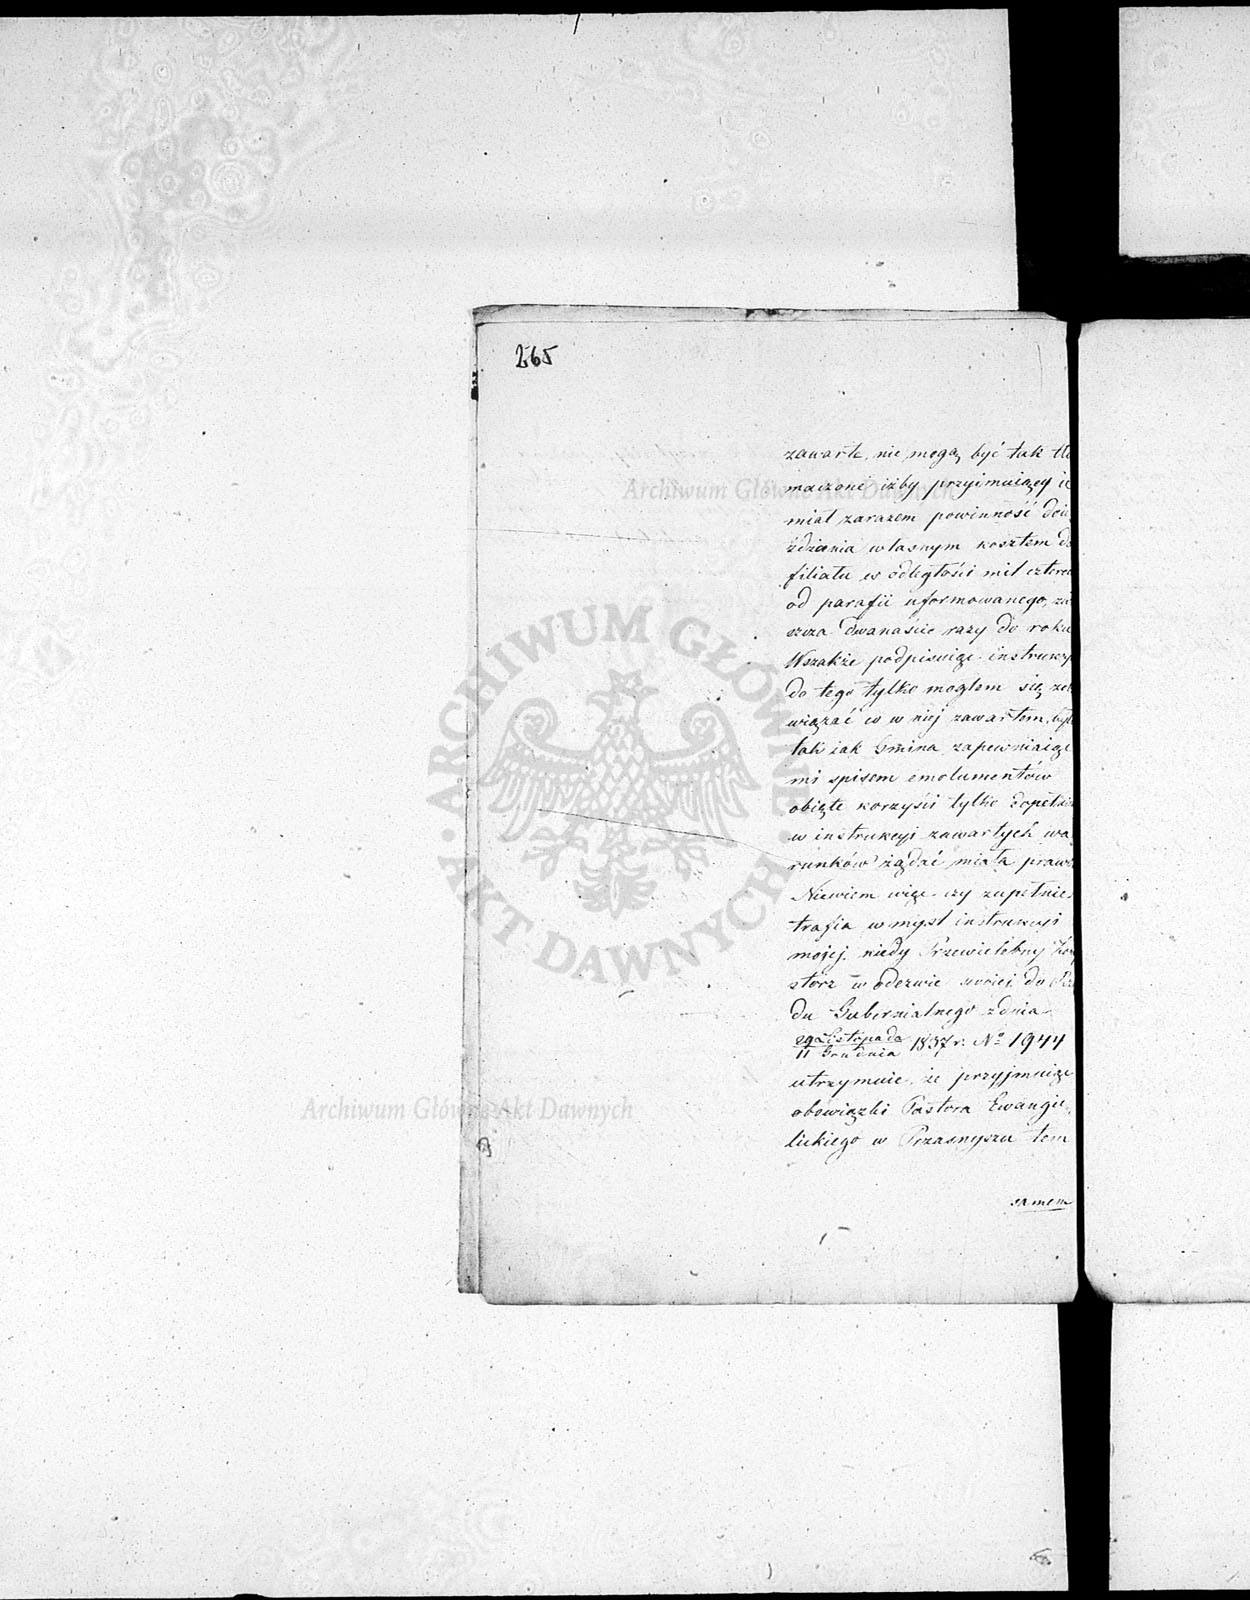 265
zawarte, nie mogą być tak tło
maczone iżby przyimuiący ie
miał zarazem powinność doie
żdżania własnym kosztem do
filiału w odległości mil czterech
od parafii uformowanego, zw
szcza dwanaście razy do roku
Wszakże podpisuiąc instrukcy
do tego tylko mogłem się zob
wiązać co w niej zawartem by
tak iak Gmina zapewniaiąc
mi spisem emolumentów
obięte korzyści tylko dopełnie
w instrukcyi zawartych wa
runków żądać miała prawo
Niewiem więc czy zupełnie
trafia w myśl instrukcyi
mojej kiedy Przewielebny Kon
storz w odezwie swoiej do Rzą
du Gubernialnego z dnia
29 Listopada
11 Grudnia 1837 r. No 1944
utrzymuie, że przyjmuiąc
obowiązki Pastora Ewangie
lickiego w Przasnyszu tem
samem
Archiwum Główne Akt Dawnych
ARCHIWUM GŁÓWNE AKT DAWNYCH
Archiwum Główne Akt Dawnych